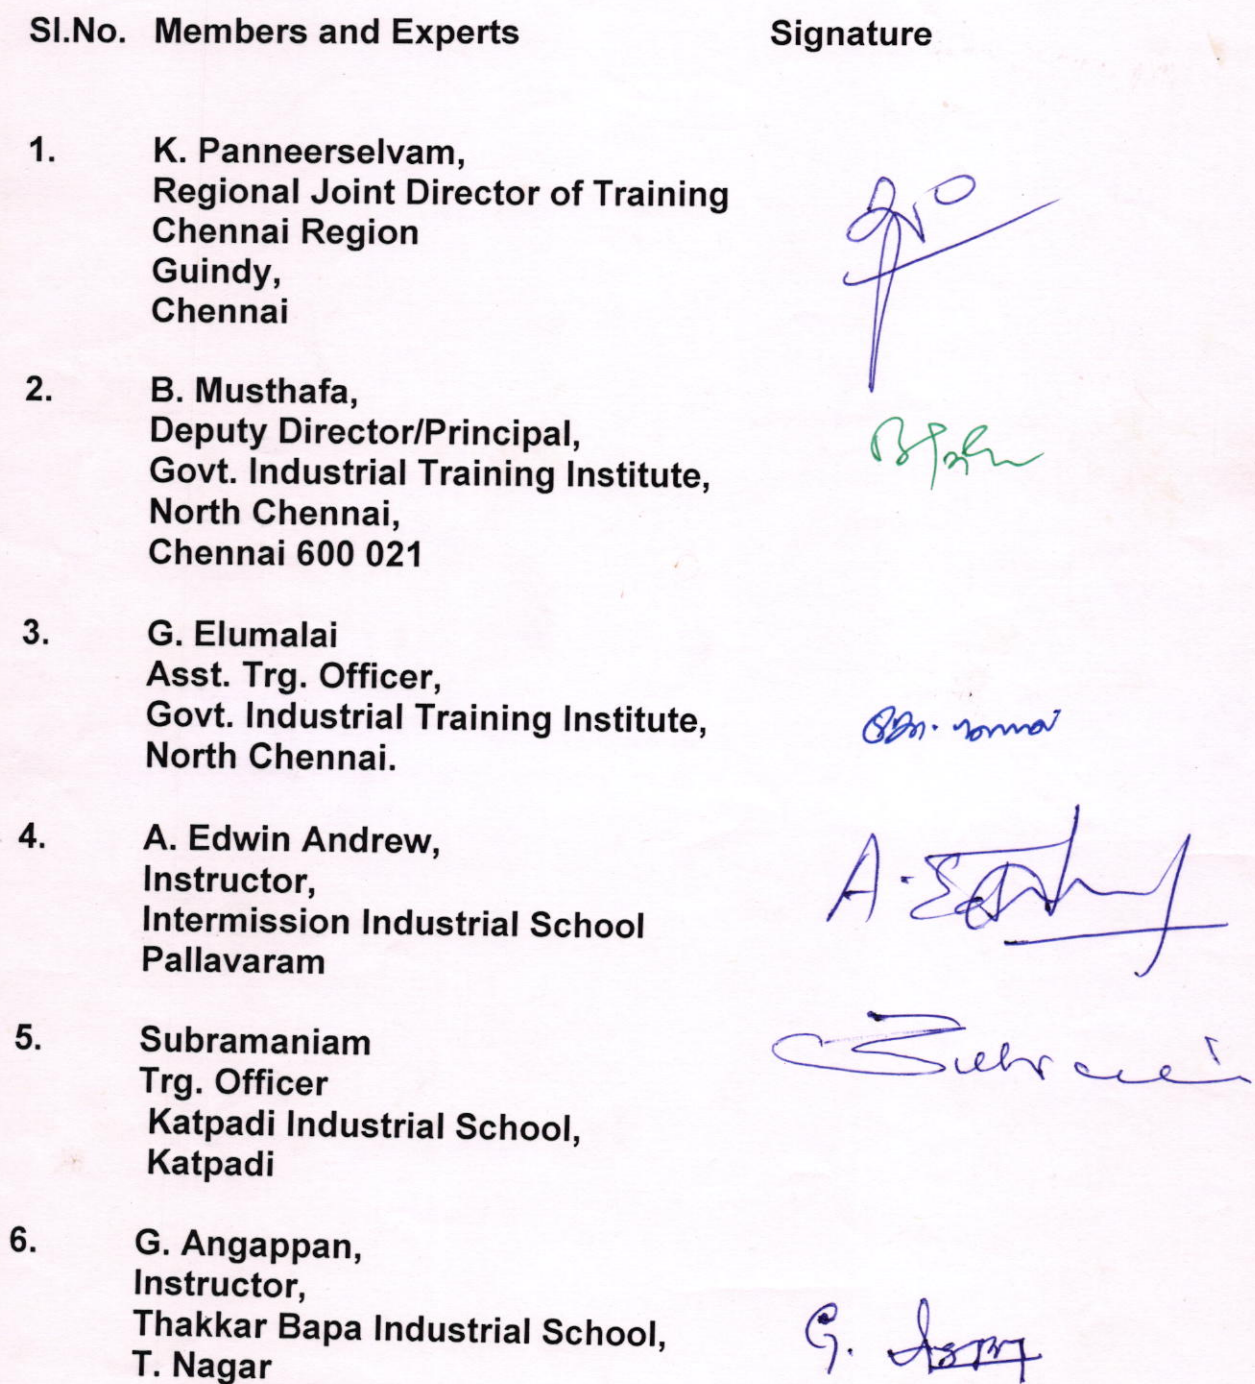 Sl.No. Members and Experts Signature
1. K. Panneerselvam,
Regional Joint Director of Training
Chennai Region
Guindy,
Chennai
2. B. Musthafa,
Deputy Director/Principal,
Govt. Industrial Training Institute,
North Chennai,
Chennai 600 021
3. G. Elumalai
Asst. Trg. Officer,
Govt. Industrial Training Institute,
North Chennai.
4. A. Edwin Andrew,
Instructor,
Intermission Industrial School
Pallavaram
5. Subramaniam
Trg. Officer
Katpadi Industrial School,
Katpadi
6. G. Angappan,
Instructor,
Thakkar Bapa Industrial School,
T. Nagar